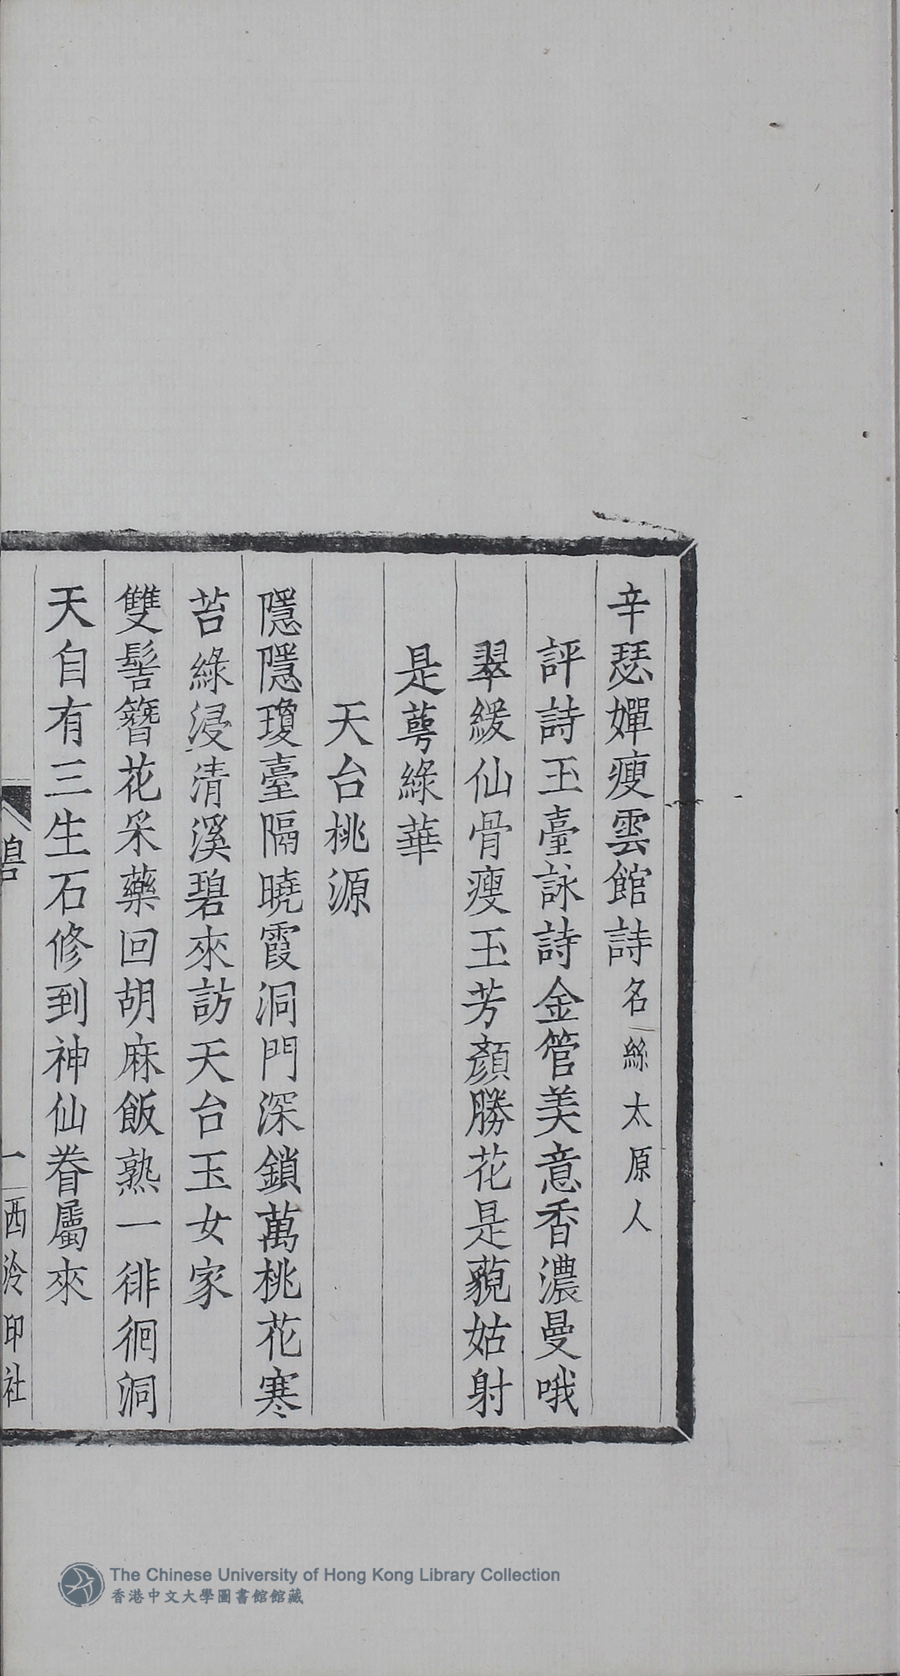 辛瑟嬋瘦雲館詩 名絲太原人
評詩玉臺詠詩金管美意香濃曼哦
翠緩仙骨瘦玉芳顏勝花是藐姑射
是蕚綠華
天台桃源
隱隱瓊臺隔曉霞洞門深鎖萬桃花寒
苔綠浸清溪碧來訪天台玉女家
雙髻簪花采藥回胡麻飯熟一徘徊洞
天自有三生石修到神仙眷屬來
一 西泠印社
The Chinese University of Hong Kong Library Collection
香港中文大學圖書館館藏